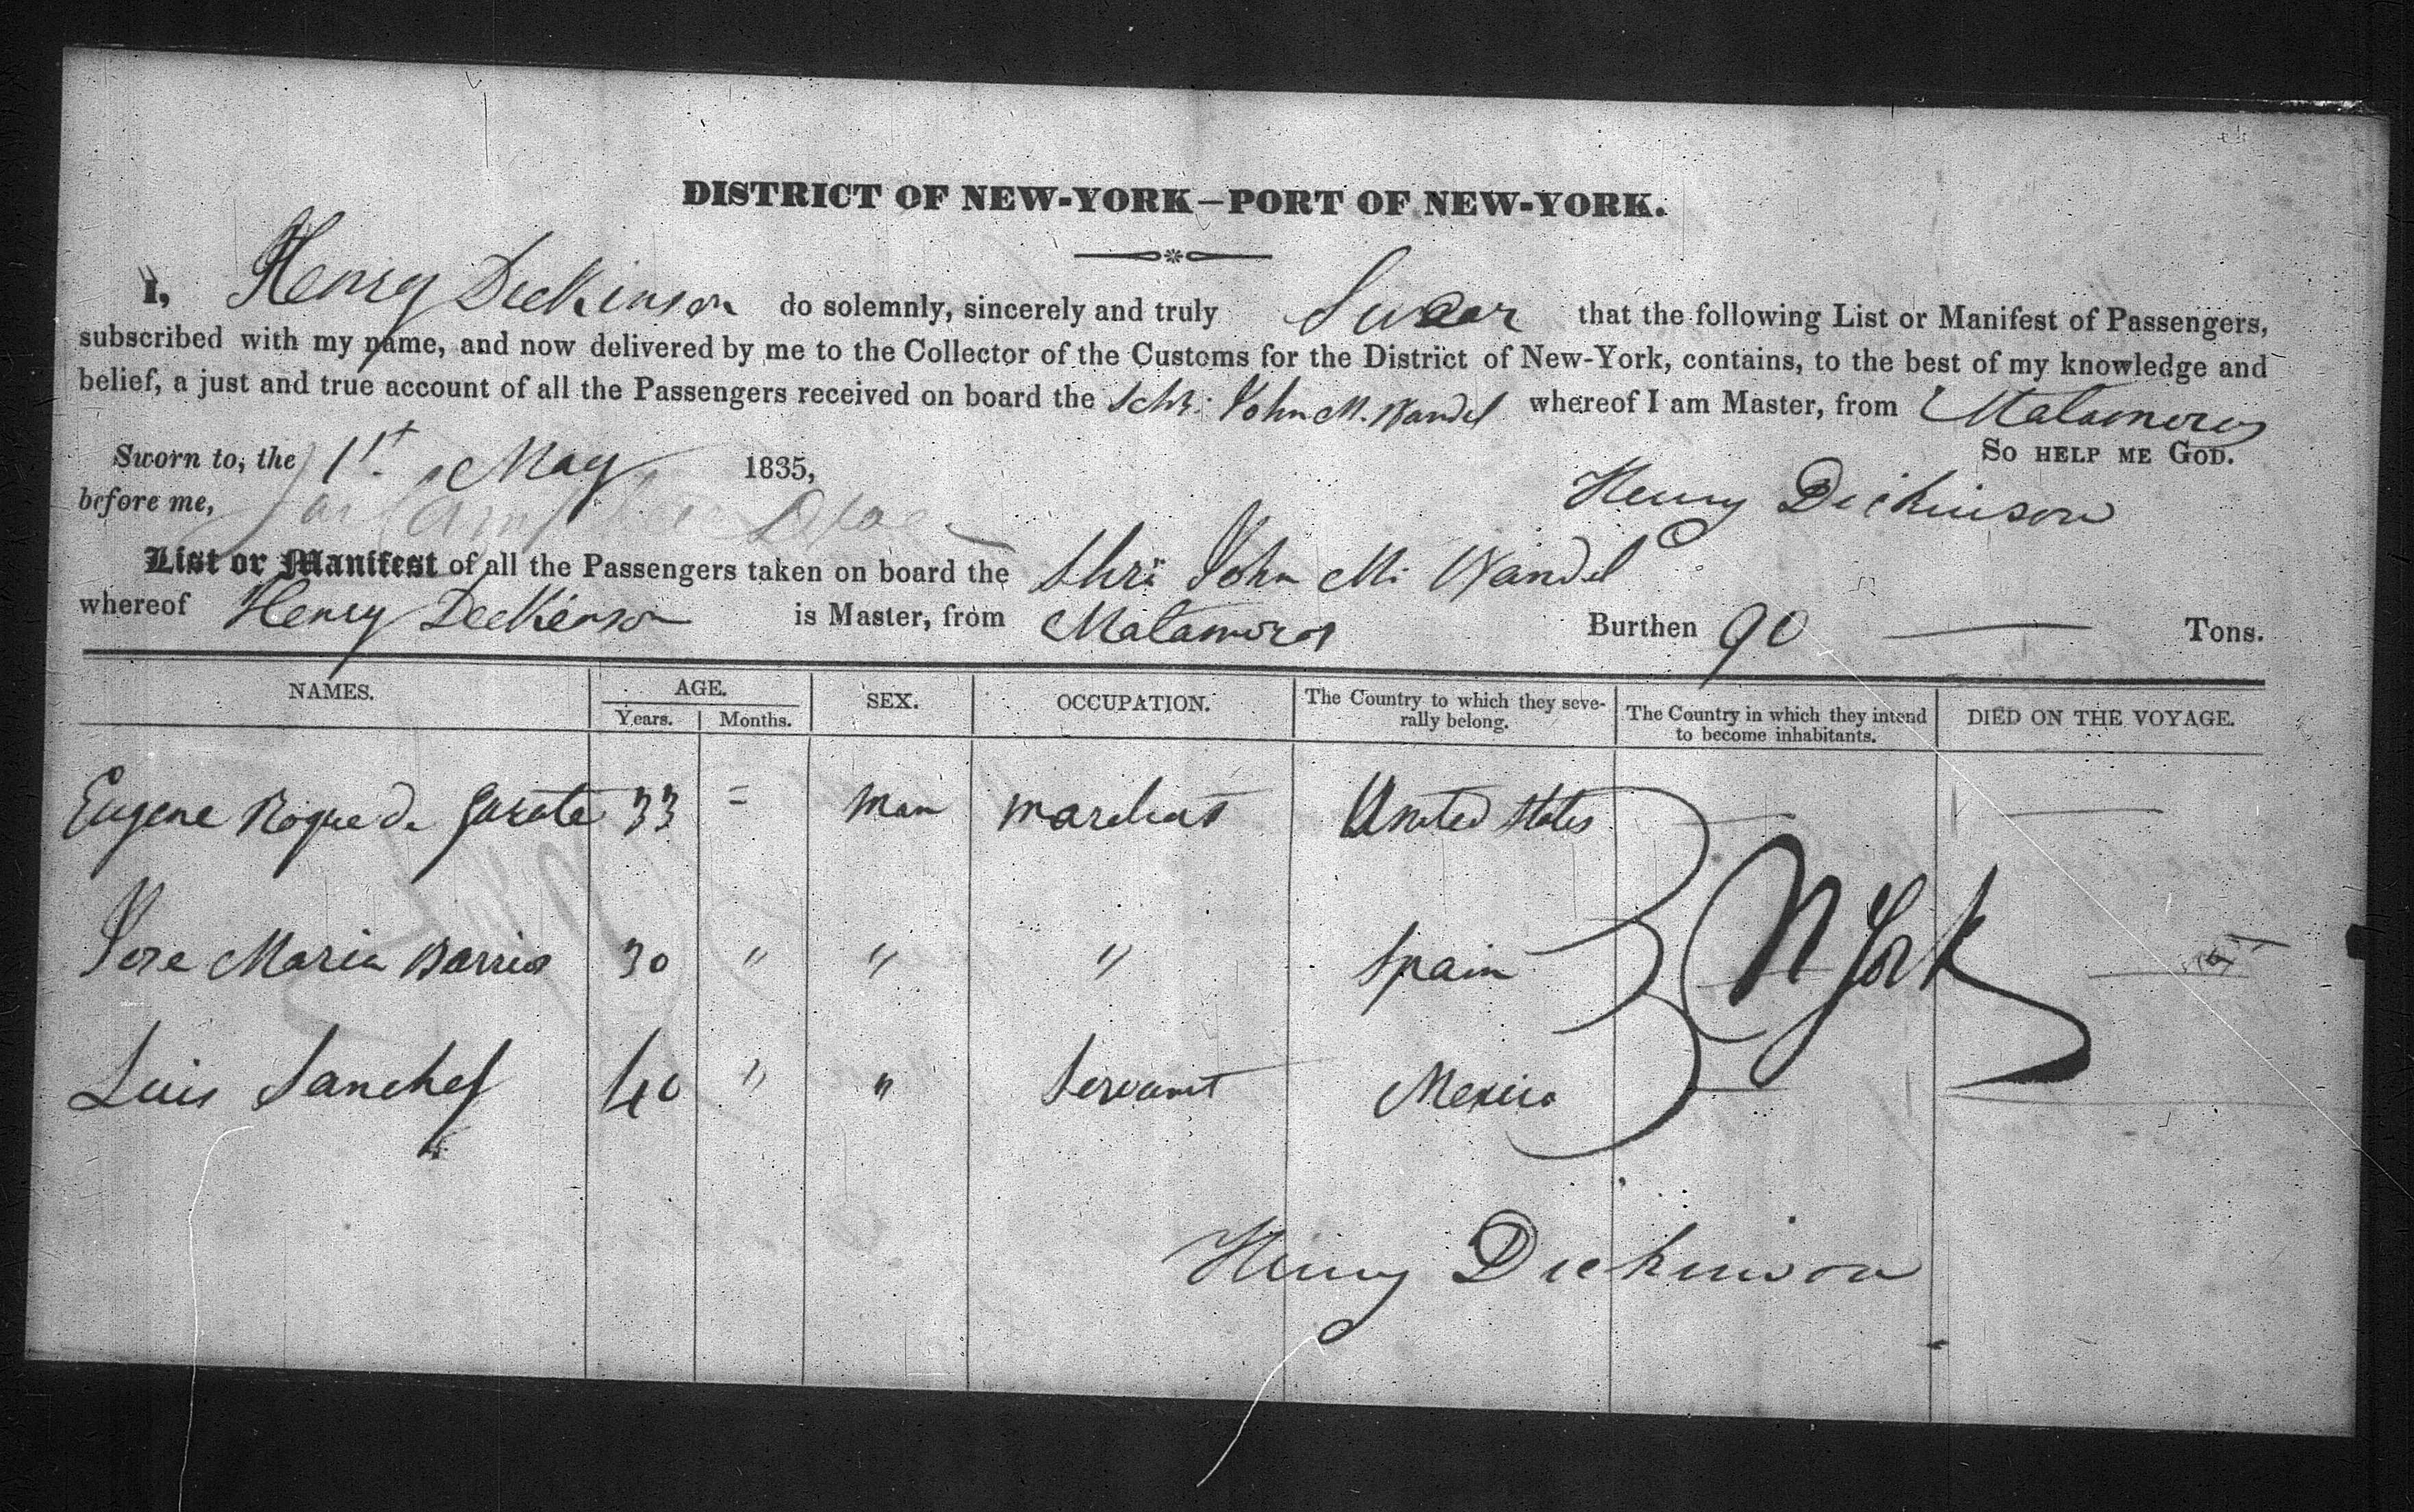 DISTRICT OF NEW-YORK—PORT OF NEW-YORK.
I, Henry Dickinson do solemnly, sincerely and truly Swear that the following List or Manifest of Passengers,
subscribed with my name, and now delivered by me to the Collector of the Customs for the District of New-York, contains, to the best of my knowledge and
belief, a just and true account of all the Passengers received on board the Schr. John M. Wandel whereof I am Master, from Matamoros
Sworn to, the 1st May 1835, So HELP ME GOD.
before me, Henry Dickinson
List or Manifest of all the Passengers taken on board the Shr: John M. Wandel
whereof Henry Dickinson is Master, from Matamoros Burthen 90 Tons.
NAMES. AGE. SEX. OCCUPATION. The Country to which they seve-
rally belong. The Country in which they intend
to become inhabitants. DIED ON THE VOYAGE.
Years. Months.
Eugene Roque de Garate 33 = man United States
Jose Maria Barrios 30 " " " Spain N York
Luis Sanchez 40 " " Servant Mexico
Henry Dickinson